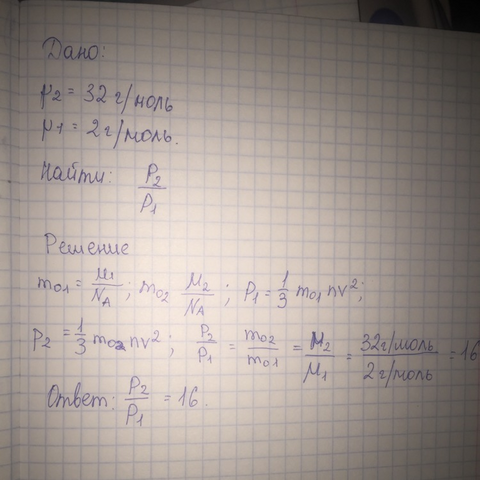 Дано:
μ2 = 32 г/моль
μ1 = 2 г/моль.
Найти: P2/P1
Решение
m01 = μ1/NA; m02 μ2/NA; P1 = 1/3 m01 nv²;
P2 = 1/3 m02 nv²; P2/P1 = m02/m01 = μ2/μ1 = 32г/моль/2г/моль = 16
Ответ: P2/P1 = 16.